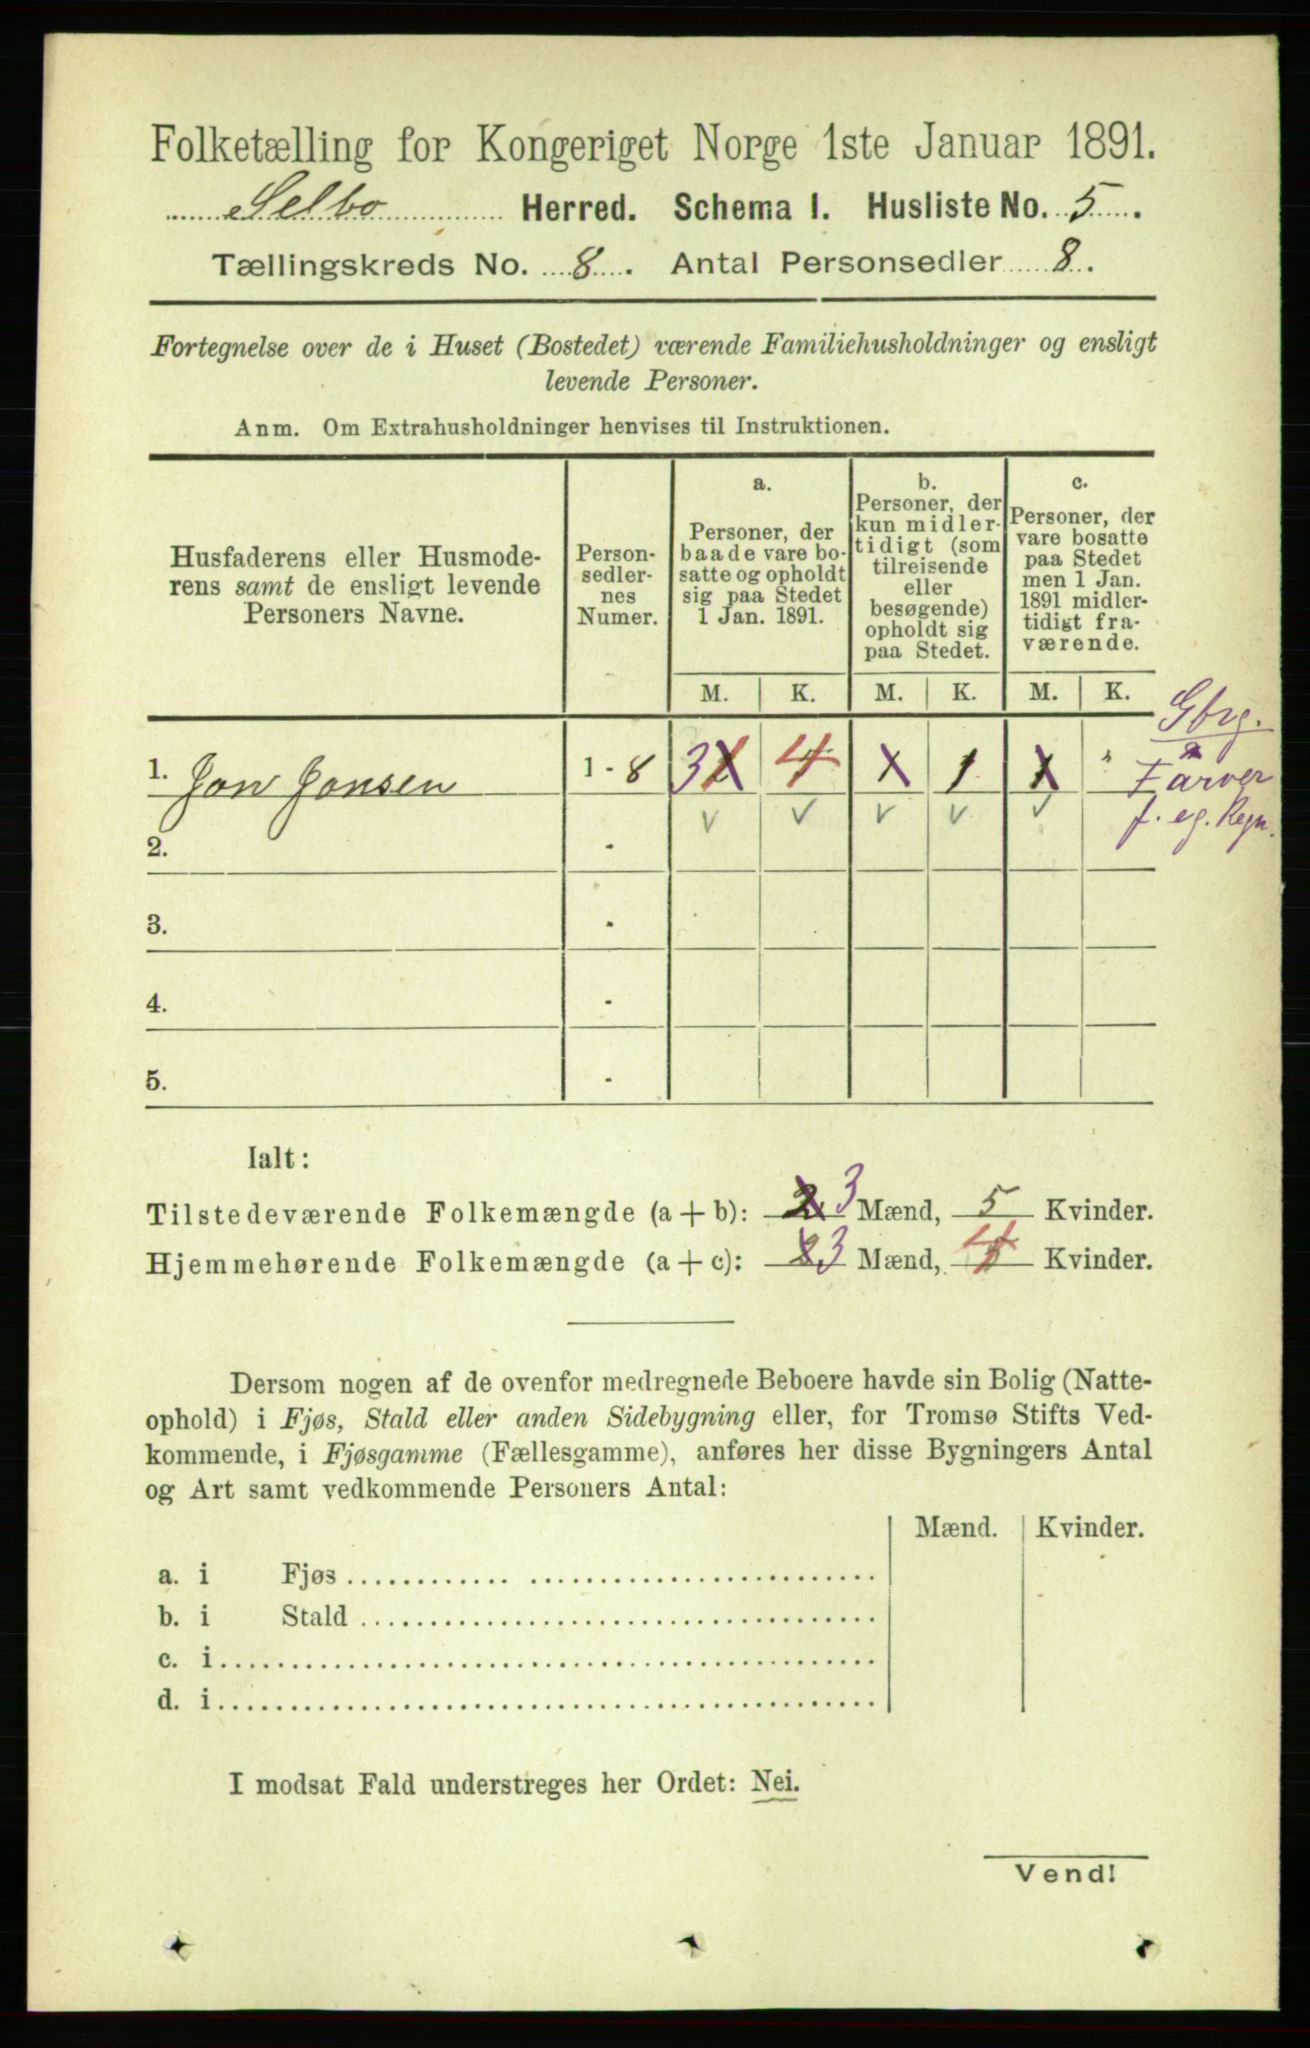 Folketælling for Kongeriget Norge 1ste Januar 1891.
Selbo Herred. Schema I. Husliste No. 5.
Tællingskreds No. 8. Antal Personsedler 8.
Fortegnelse over de i Huset (Bostedet) værende Familiehusholdninger og ensligt
levende Personer.
Anm. Om Extrahusholdninger henvises til Instruktionen.
Husfaderens eller Husmode-
rens samt de ensligt levende
Personers Navne.
Person-
sedler-
nes
Numer.
a.
Personer, der
baade vare bo-
satte og opholdt
sig paa Stedet
1 Jan. 1891.
b.
Personer, der
kun midler-
tidigt (som
tilreisende
eller
besøgende)
opholdt sig
paa Stedet.
c.
Personer, der
vare bosatte
paa Stedet
men 1 Jan.
1891 midler-
tidigt fra-
værende.
M. K. M. K. M. K.
Gbrg.
1. Jon Jonsen 1-8 3 4 1 1 " Farver
f. eg. Regn.
2. -
3. -
4. -
5. -
Ialt:
Tilstedeværende Folkemængde (a + b): 2 3 Mænd, 5 Kvinder.
Hjemmehørende Folkemængde (a + c): 3 Mænd, 4 Kvinder.
Dersom nogen af de ovenfor medregnede Beboere havde sin Bolig (Natte-
ophold) i Fjøs, Stald eller anden Sidebygning eller, for Tromsø Stifts Ved-
kommende, i Fjøsgamme (Fællesgamme), anføres her disse Bygningers Antal
og Art samt vedkommende Personers Antal:
Mænd. Kvinder.
a. i Fjøs
b. i Stald
c. i
d. i
I modsat Fald understreges her Ordet: Nei.
Vend!